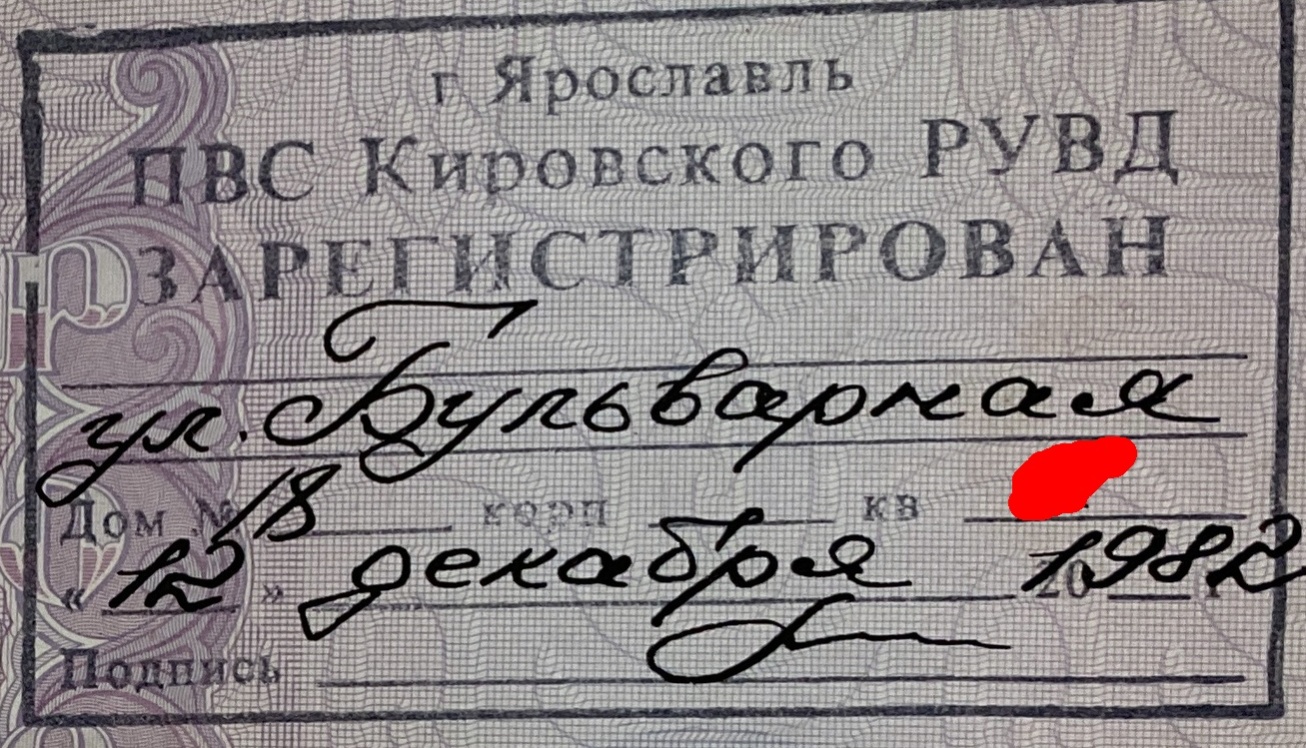 г Ярославль
ПВС Кировского РУВД
ЗАРЕГИСТРИРОВАН
ул. Бульварная
Дом № 18 корп кв
« 12 » декабря 1982
Подпись